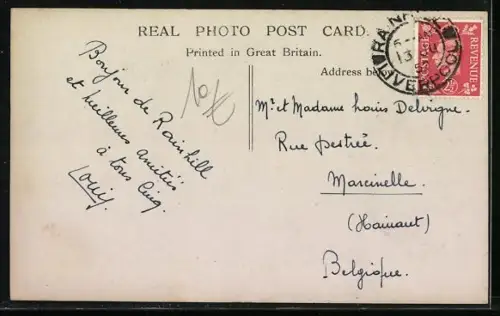 REAL PHOTO POST CARD.
Printed in Great Britain.
Address
Bonjour de Rainhill
et meilleures amitiés
à tous cinq.
Louis
10
RAINHILL
13
LIVERPOOL
POSTAGE
REVENUE
2½
Mr et Madame Louis Delvigne
Rue
Marcinelle
(Hainaut)
Belgique.